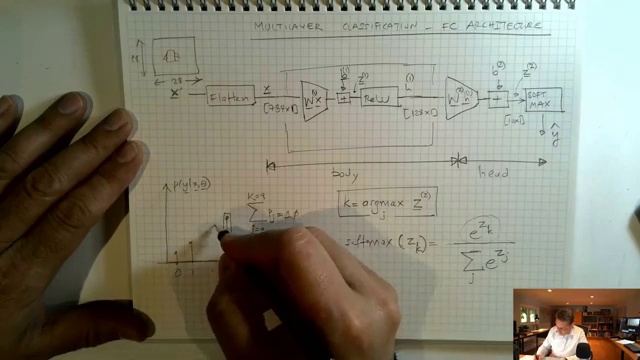 MULTILAYER CLASSIFICATION - FC ARCHITECTURE
28
28
X
Flatten
x
[784x1]
W⁽¹⁾x
b⁽¹⁾
+
z⁽¹⁾
ReLU
h⁽¹⁾
[128x1]
W⁽²⁾h⁽¹⁾
b⁽²⁾
+
z⁽²⁾
[10x1]
SOFT
MAX
ŷ
body
head
p(y|x,θ)
0 1
K = argmax z⁽²⁾
softmax (z_k) = e^{z_k} / Σ_j e^{z_j}